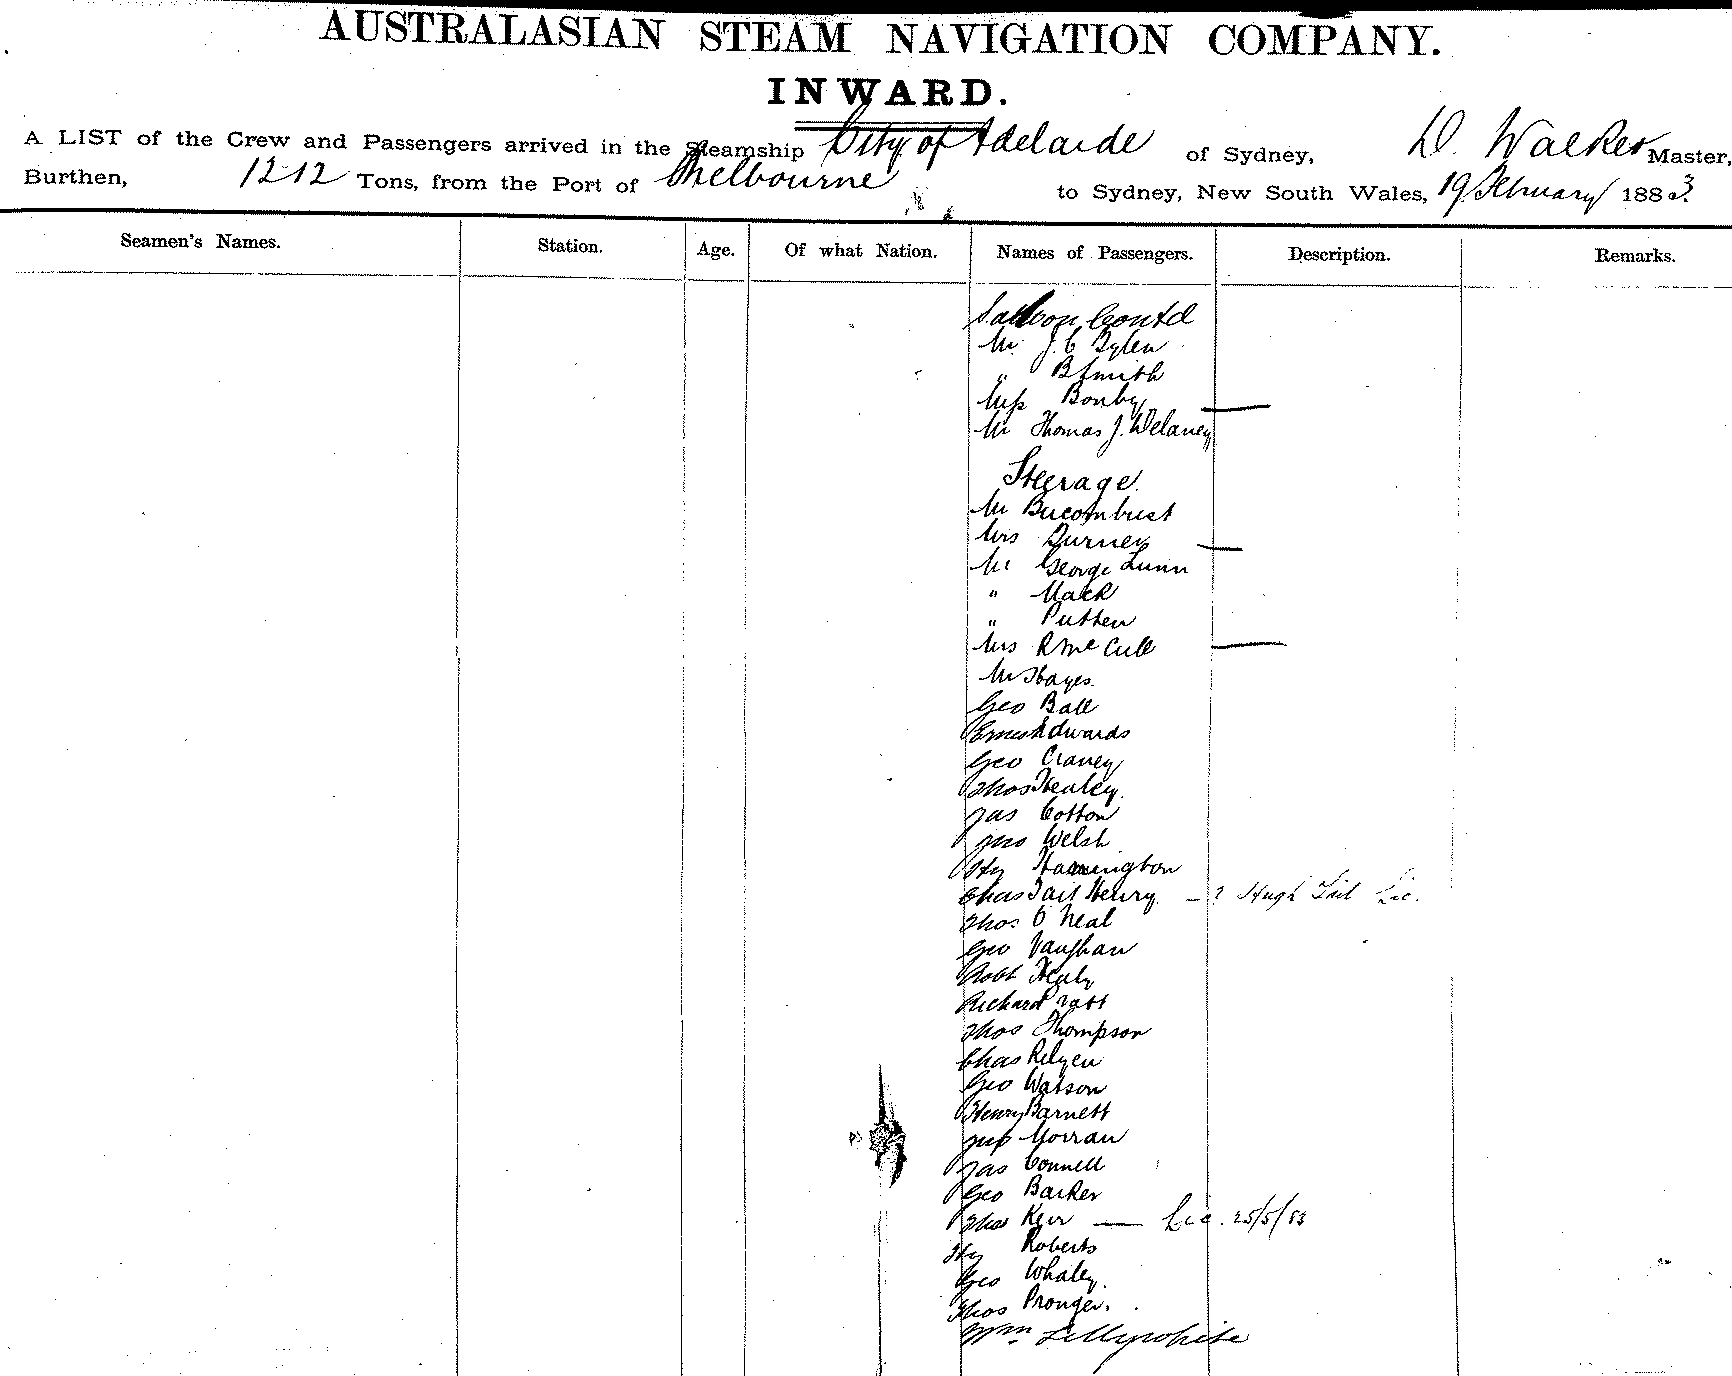 AUSTRALASIAN STEAM NAVIGATION COMPANY.
INWARD.
A LIST of the Crew and Passengers arrived in the Steamship City of Adelaide of Sydney, D. Walker Master,
Burthen, 1212 Tons, from the Port of Melbourne to Sydney, New South Wales, 19 February 1883.
Seamen's Names. Station. Age. Of what Nation. Names of Passengers. Description. Remarks.
Saloon Contd
Mr J. C
" B Smith
Miss Bonby
Mr Thomas J. Delaney
Steerage.
Mr
Mrs Durney
Mr George Lunn
" Mack
" Putten
Mrs R McCull
Mr Hayes.
Geo Ball
Ernest Edwards
Geo Craney
Thos Healey.
Jas Cotton
Jno Welsh
Hy
Chas Tait Henry. - ? Hugh Tait Lic.
Thos O Neal
Geo Vaughan
Robt Healy
Richard Pratt
Thos Thompson
Chas
Geo Watson
Henry Barnett
Morran
Jas Connell
Geo Barker
Thos Keir — Lic. 25/5/83
Hy Roberts
Geo Whaley.
Thos Pronger.
Wm Lillywhite